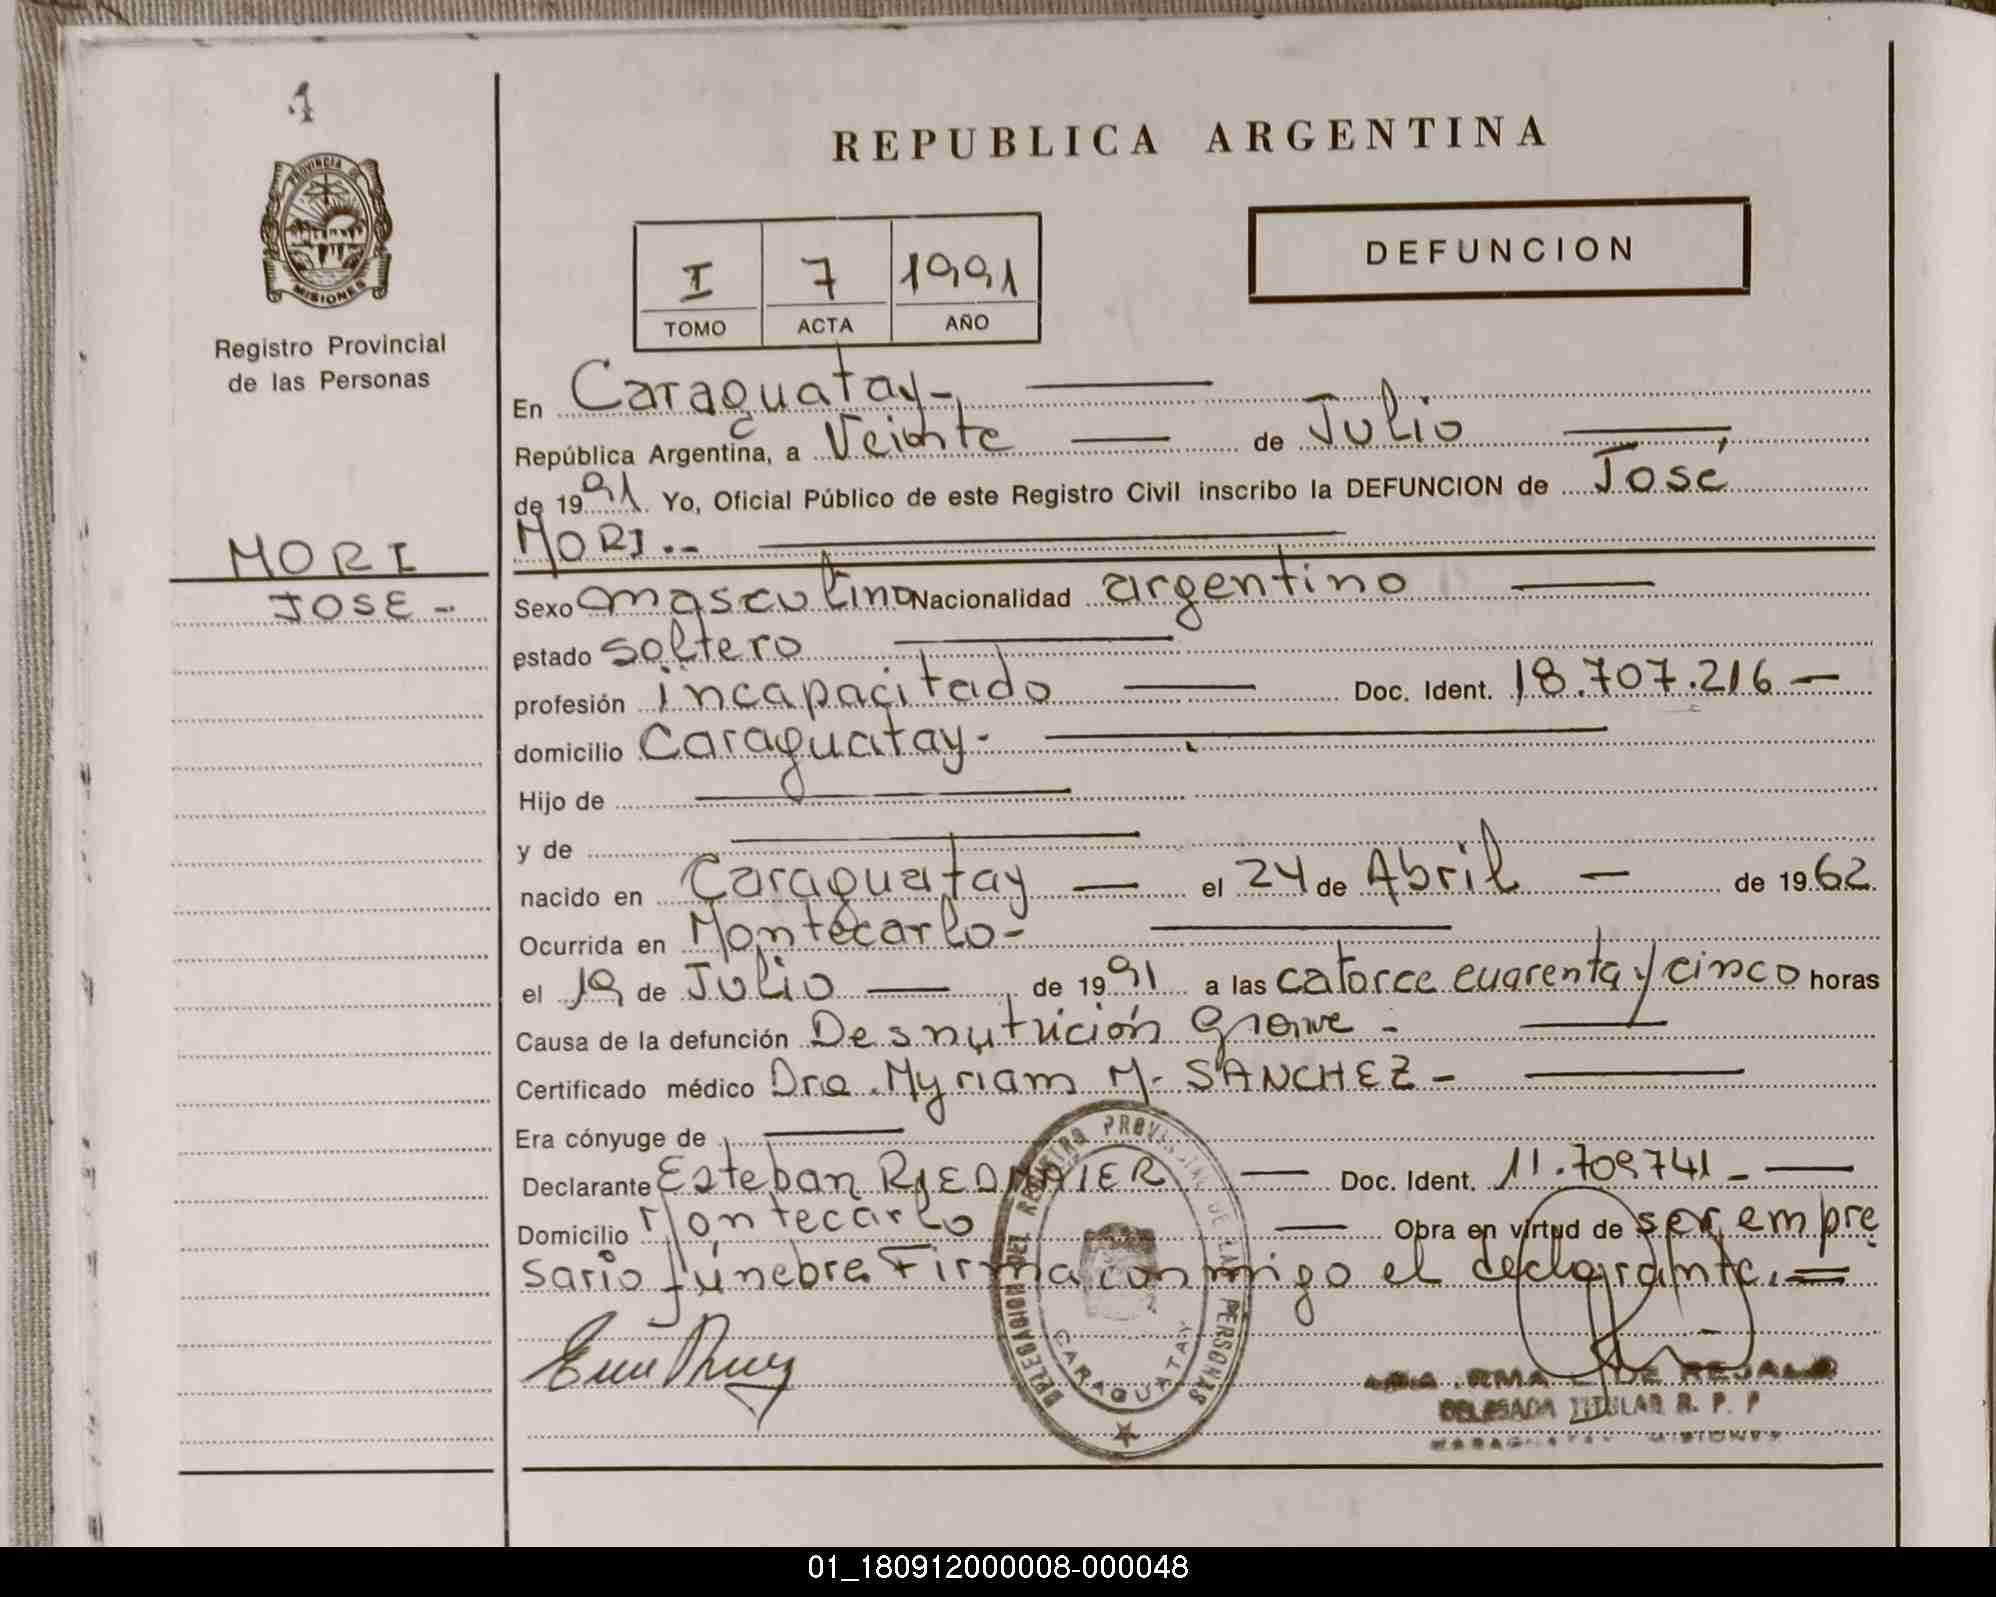 1
PROVINCIA DE
MISIONES
Registro Provincial
de las Personas
MORI
JOSE -
REPUBLICA ARGENTINA
DEFUNCION
I 7 1991
TOMO ACTA AÑO
En Caraguatay-
República Argentina, a Veinte de Julio
de 1991 Yo, Oficial Público de este Registro Civil inscribo la DEFUNCION de José
MORI.--
Sexo masculino Nacionalidad argentino
estado soltero
profesión incapacitado Doc. Ident. 18.707.216 -
domicilio Caraguatay-
Hijo de
y de
nacido en Caraguatay el 24 de Abril de 1962
Ocurrida en Montecarlo-
el 19 de Julio de 1991 a las catorce cuarenta y cinco horas
Causa de la defunción Desnutrición grave -
Certificado médico Dra. Myriam M. SANCHEZ -
Era cónyuge de
Declarante Esteban RIEDMAIER Doc. Ident. 11.709741 -
Domicilio Montecarlo Obra en virtud de ser empre
sario fúnebre. Firma conmigo el declarante. =
DELEGACION DEL REGISTRO PROVINCIAL DE LAS PERSONAS
CARAGUATAY
DE REJALO
DELEGADA TITULAR R. P. P
CARAGUATAY MISIONES
01_180912000008-000048